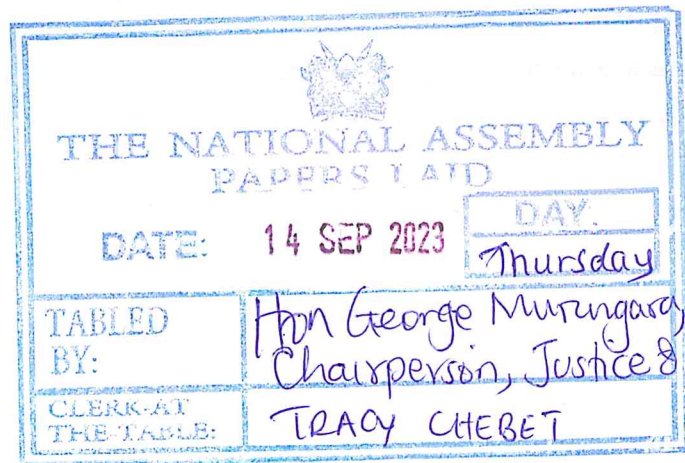 THE NATIONAL ASSEMBLY
PAPERS LAID
DATE: 14 SEP 2023
DAY.
Thursday
TABLED BY:
Hon George Murungara,
Chairperson, Justice &
CLERK-AT THE-TABLE:
TRACY CHEBET